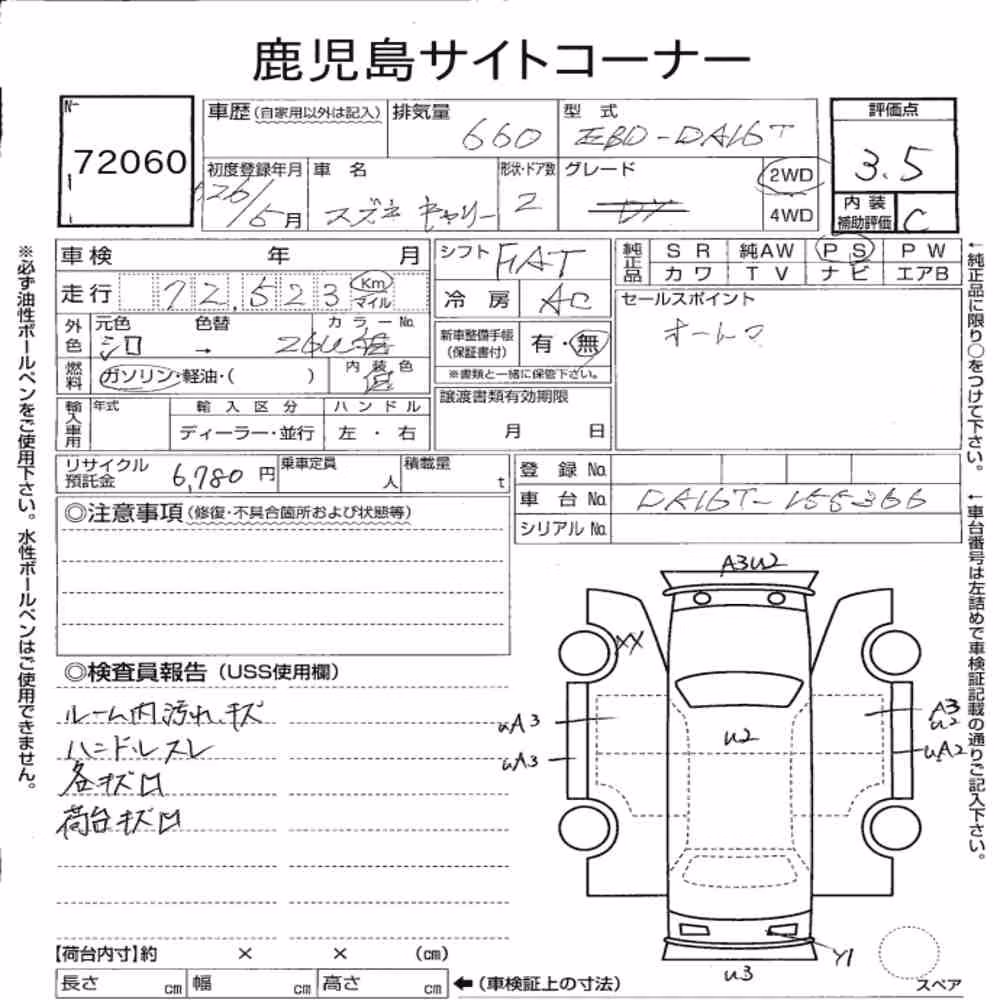 鹿児島サイトコーナー
No. 72060
車歴(自家用以外は記入) 排気量 660 型式 EBD-DA16T
初度登録年月 26/5月 車名 スズキ キャリー 形状・ドア数 2 グレード 2WD 4WD
評価点 3.5
内装補助評価 C
車検 年 月
走行 72,523 Km マイル
外色 元色 シロ 色替 → カラーNo. 26U
内装色
燃料 ガソリン・軽油・( )
輸入車用 年式 輸入区分 ディーラー・並行 ハンドル 左・右
シフト FAT
冷房 AC
新車整備手帳(保証書付) 有・無
※書類と一緒に保管下さい。
譲渡書類有効期限 月 日
純正品 SR 純AW PS PW
カワ TV ナビ エアB
セールスポイント
オートマ
リサイクル預託金 6,780円 乗車定員 人 積載量 t
登録No.
車台No. DA16T-155366
シリアルNo.
◎注意事項(修復・不具合箇所および状態等)
◎検査員報告(USS使用欄)
ルーム内汚れ、キズ
ハンドルスレ
各キズ凹
荷台キズ凹
A3U2
XX
UA3
UA3
U2
A3
U2
UA2
Y1
U3
スペア
【荷台内寸】約 × × (cm)
長さ cm 幅 cm 高さ cm ←(車検証上の寸法)
※必ず油性ボールペンをご使用下さい。水性ボールペンはご使用できません。
←純正品に限り○をつけて下さい。
←車台番号は左詰めで車検証記載の通りご記入下さい。